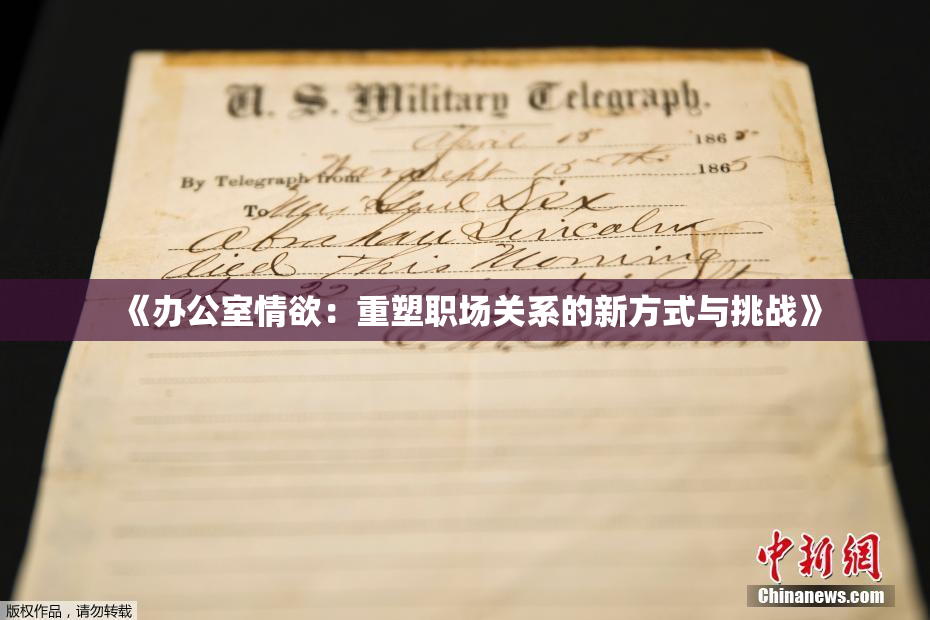 U. S. Military Telegraph.
April 15 1865
By Telegraph from War Dept 15th 1865
To Maj Genl Dix
Abraham Lincoln
died This Morning
at 22 minutes after
《办公室情欲：重塑职场关系的新方式与挑战》
E. M. Stanton
中新网
Chinanews.com
版权作品，请勿转载